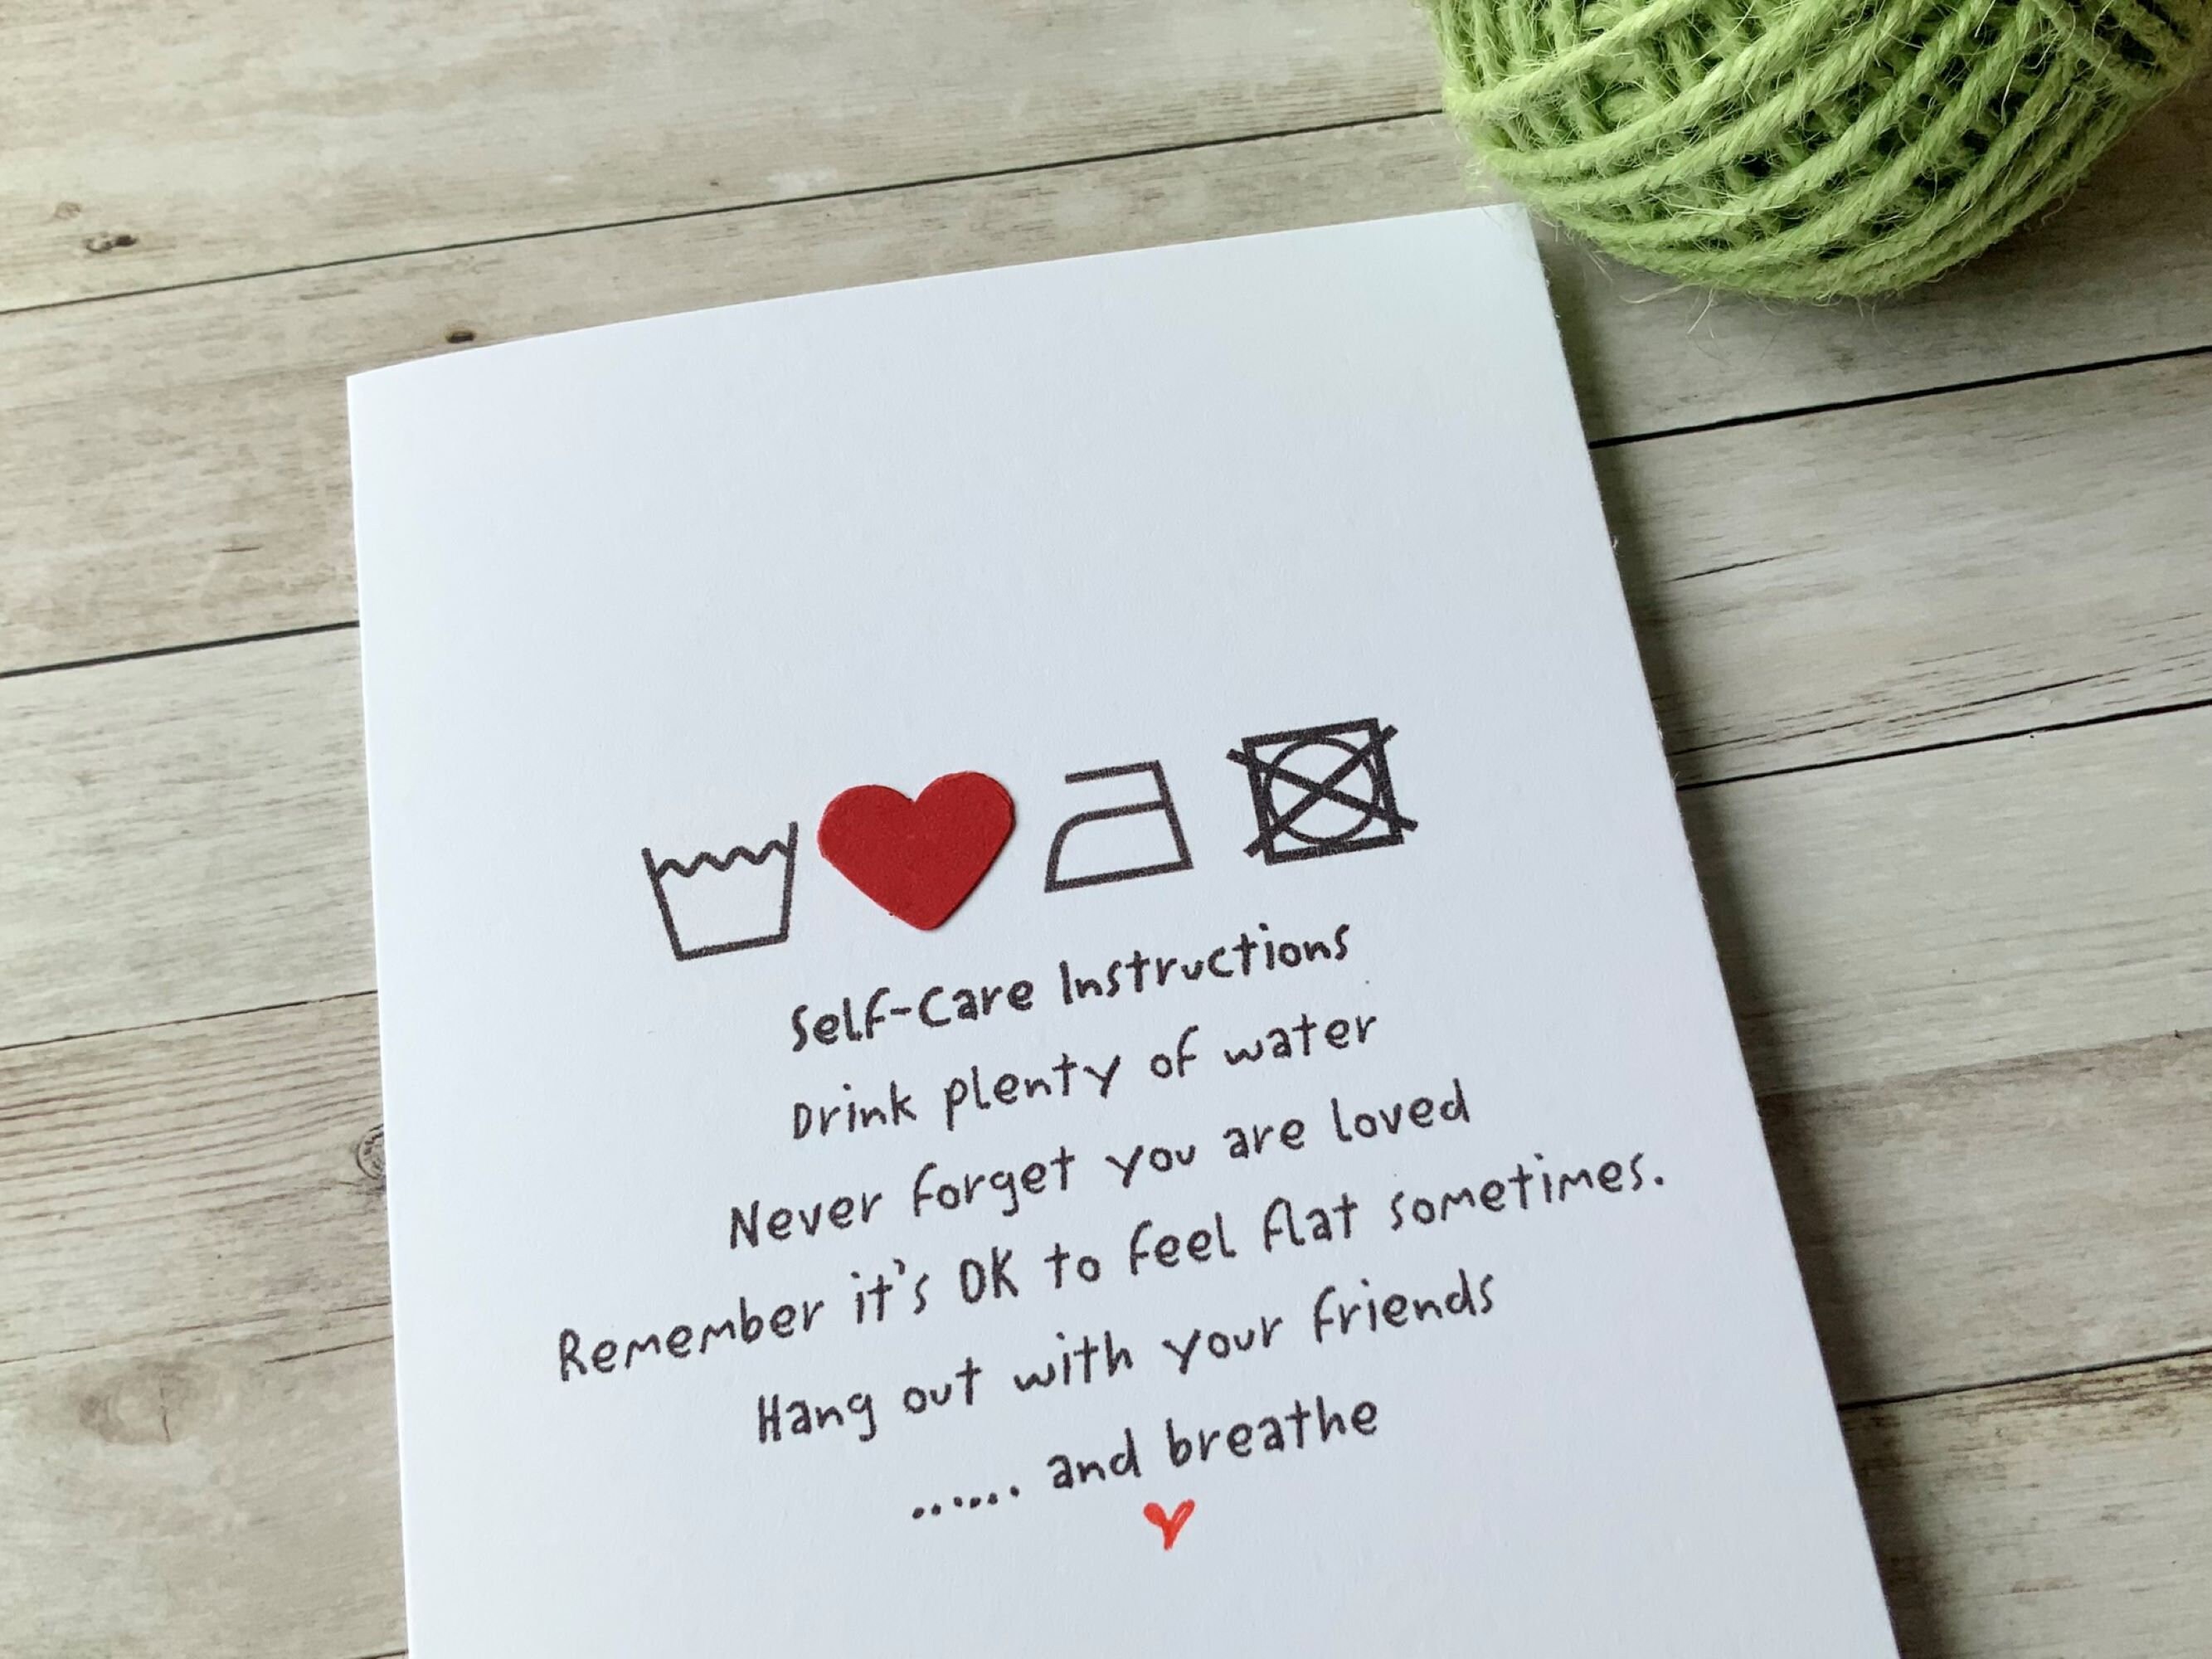 Self-Care Instructions
Drink plenty of water
Never forget you are loved
Remember it's OK to feel flat sometimes.
Hang out with your friends
...... and breathe